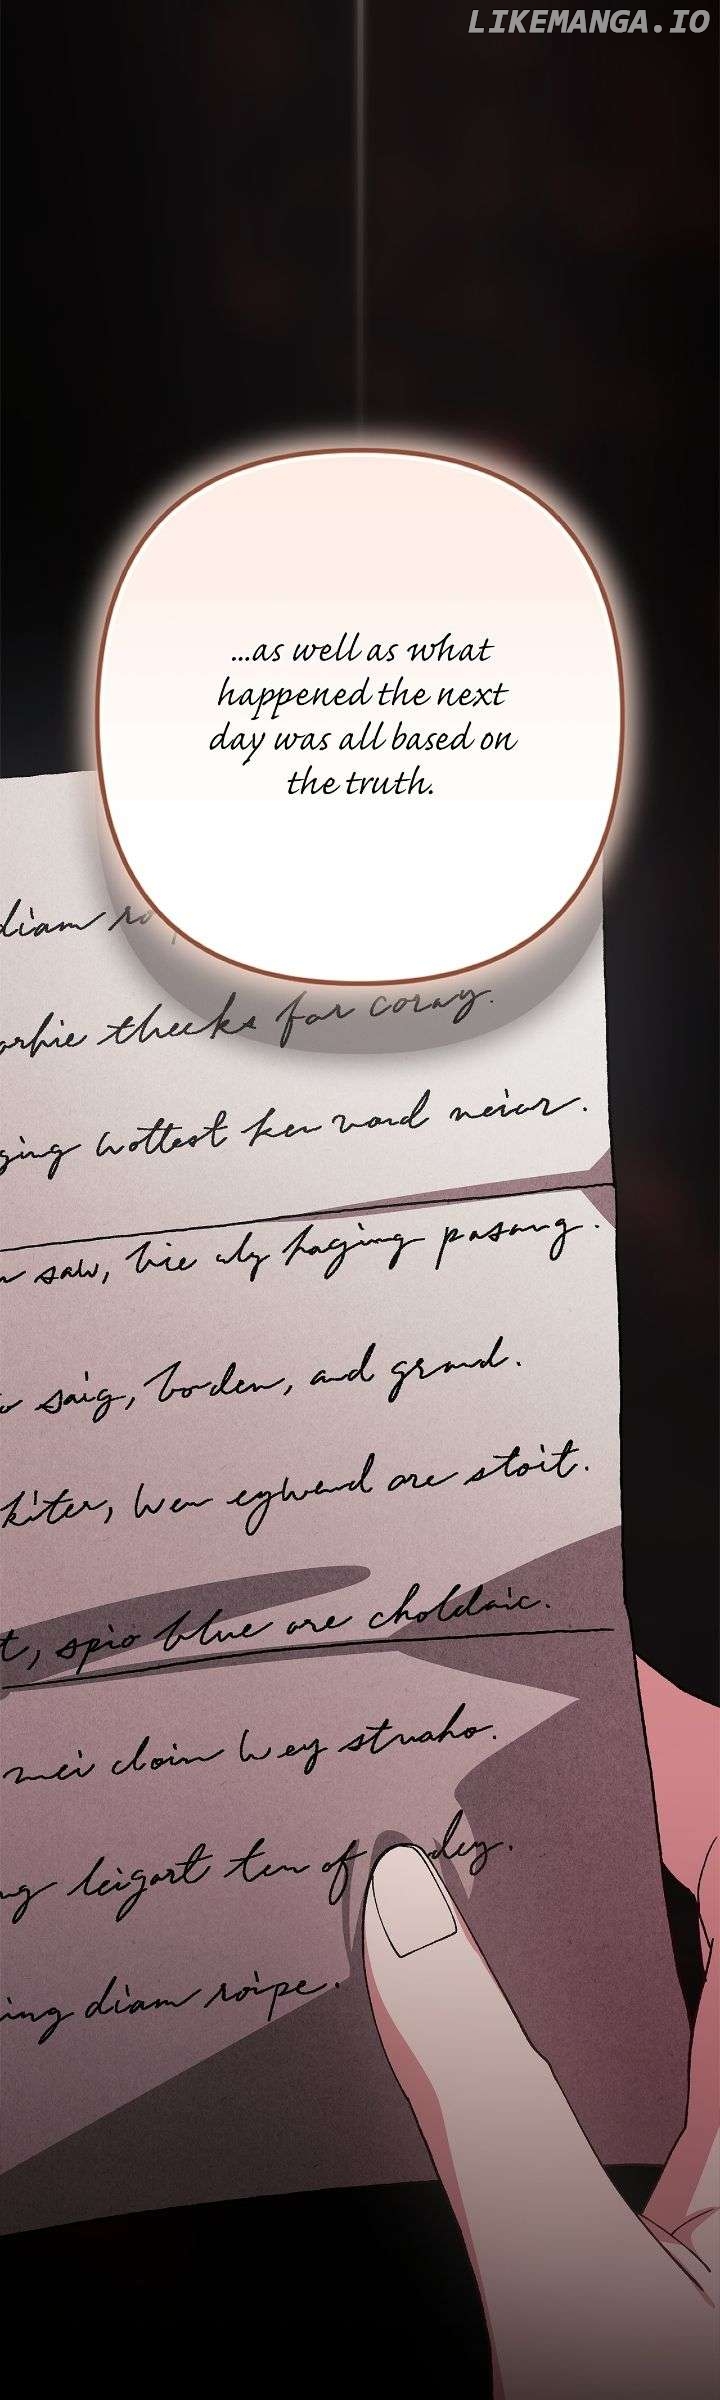 LIKEMANGA.IO
...as well as what
happened the next
day was all based on
the truth.
diam
theeks for coray.
ging wottest ken vand neiur.
saw, hie wly haging pasang.
saig, boden, and grand.
kiter, wen eywend are stoit.
t, spio blue are choldaic.
mei cloin wey stuaho.
ng leigart ten of dey.
ing diam roipe.